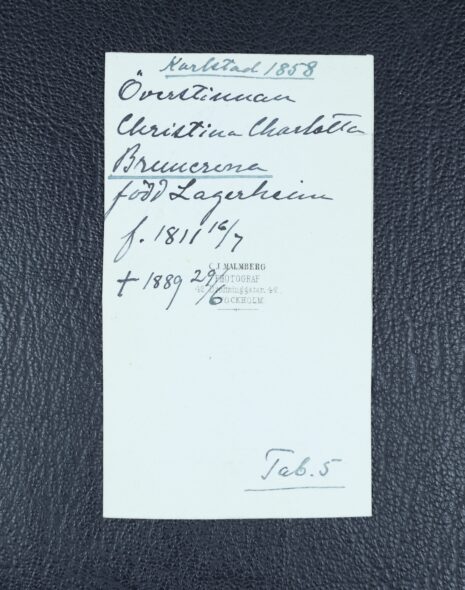 Karlstad 1858
Överstinnan
Christina Charlotta
Bruncrona
född Lagerheim
f. 1811 16/7
† 1889 29/6
C J MALMBERG
PHOTOGRAF
42 Drottninggatan 42
STOCKHOLM
Tab. 5